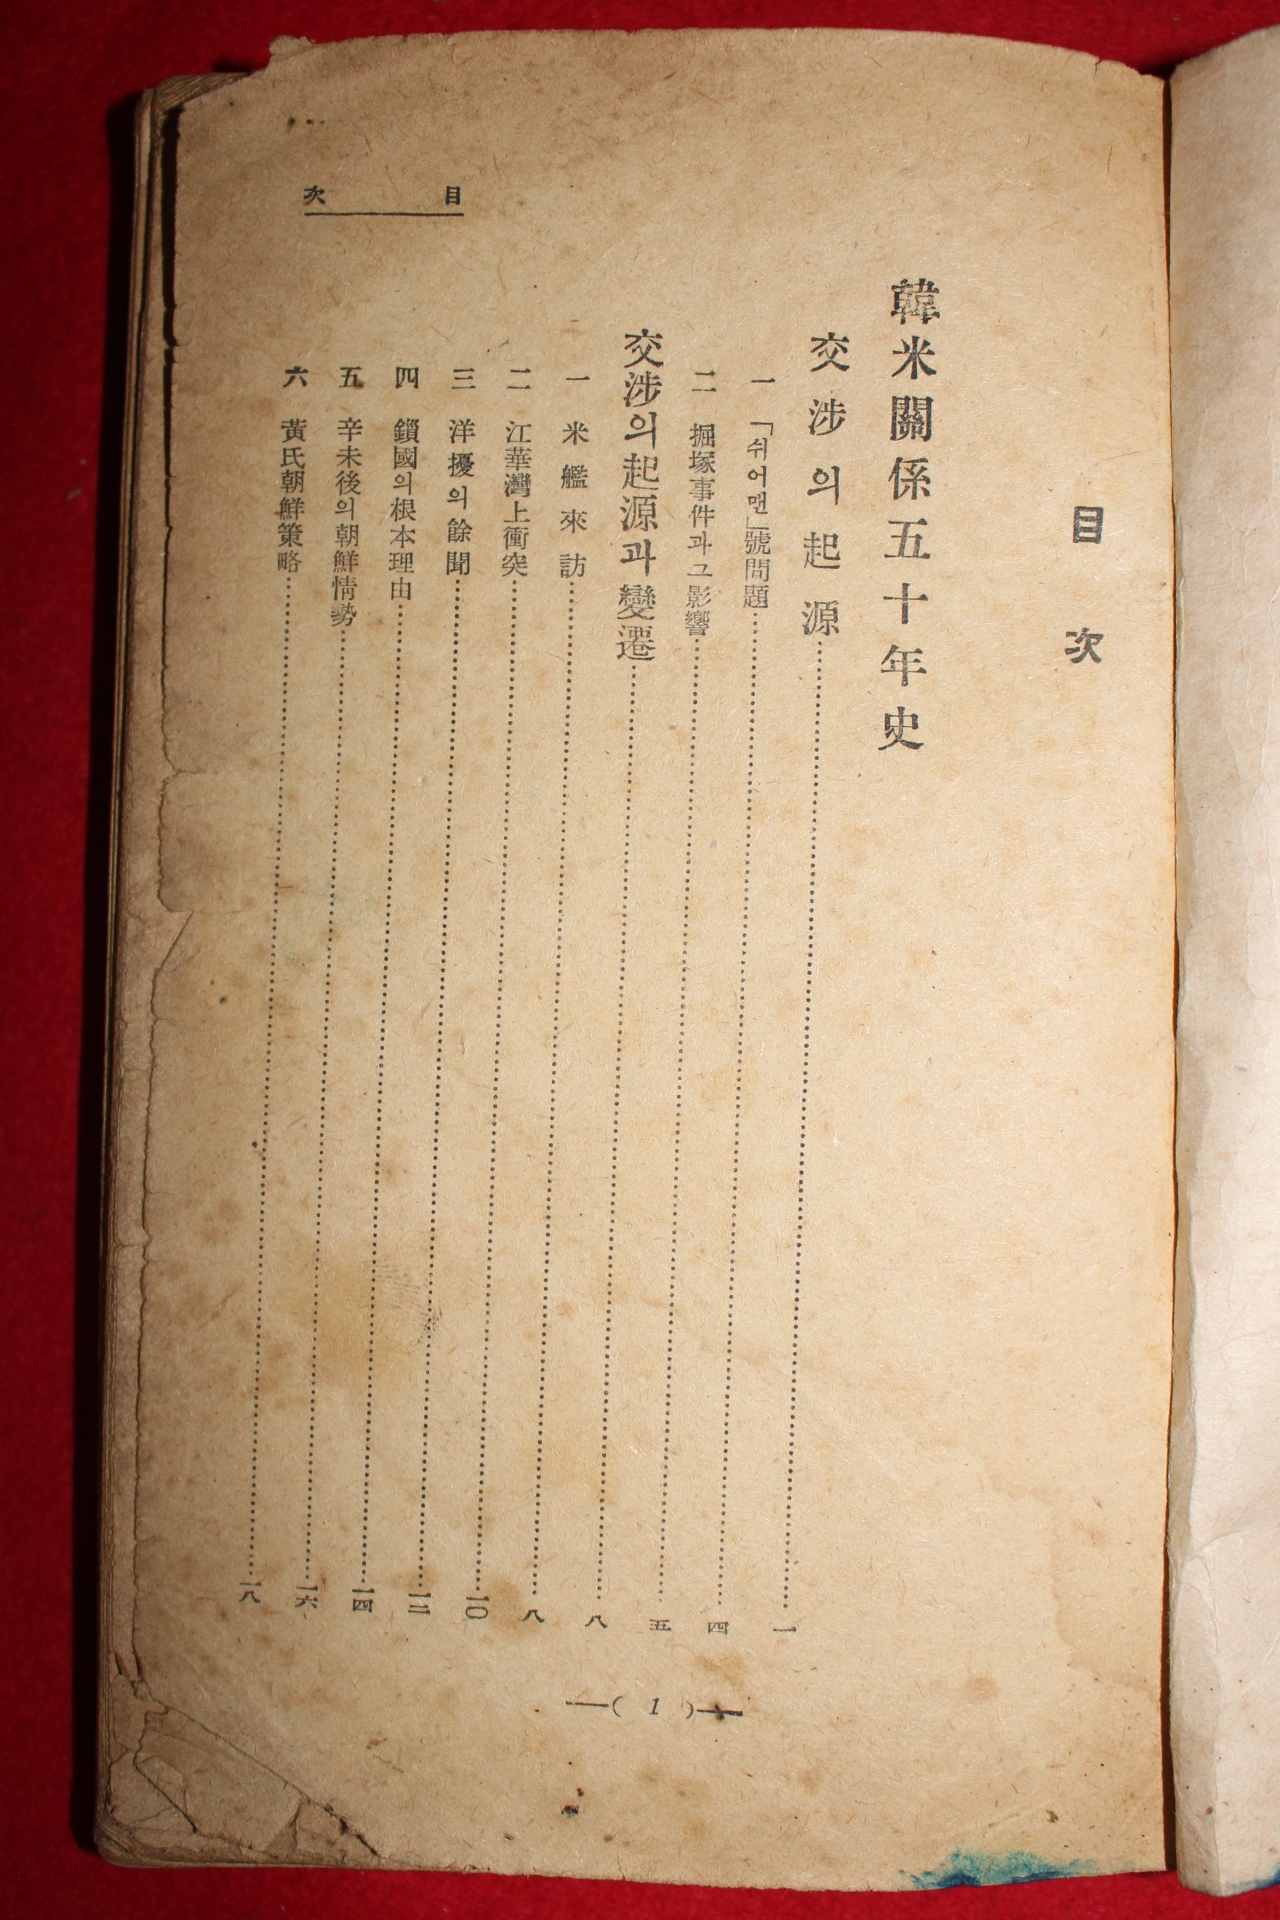 目次
目次
韓米關係五十年史
交涉의起源……一
一 「쉬어맨」號問題……四
二 掘塚事件과그影響……五
交涉의起源과變遷……八
一 米艦來訪……八
二 江華灣上衝突……一〇
三 洋擾의餘聞……一二
四 鎖國의根本理由……一四
五 辛未後의朝鮮情勢……一六
六 黃氏朝鮮策略……一八
—( 1 )—